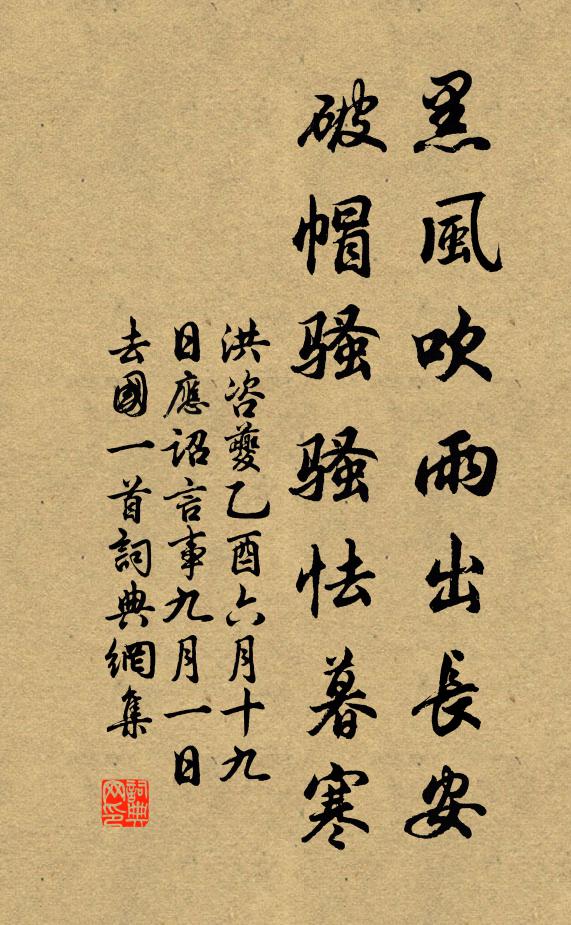 黑風吹雨出長安
破帽騷騷怯暮寒
洪咨夔乙酉六月十九
日應詔言事九月一日
去國一首詞典網集
詞典
网印